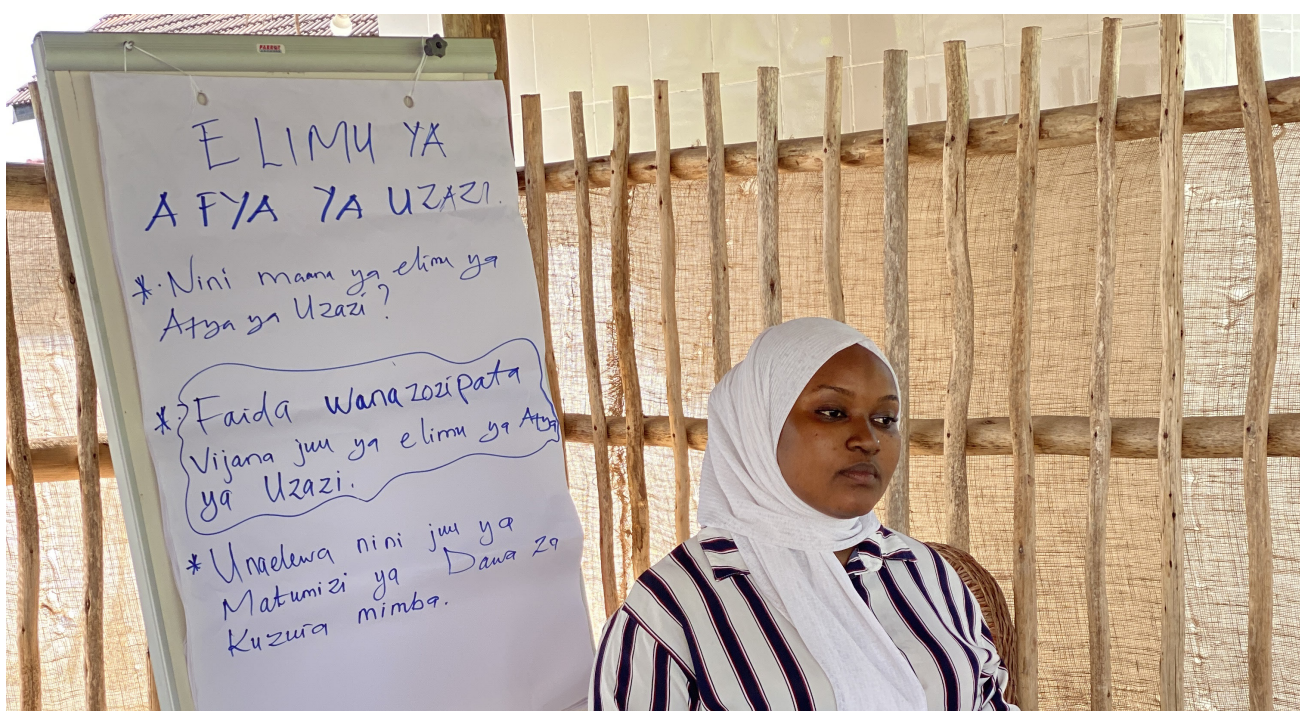 ELIMU YA
AFYA YA UZAZI.
*. Nini maana ya elimu ya
Afya ya Uzazi?
*. Faida wanazozipata
Vijana juu ya elimu ya Afya
ya Uzazi.
* Unaelewa nini juu ya
Matumizi ya Dawa za
Kuzuia mimba.